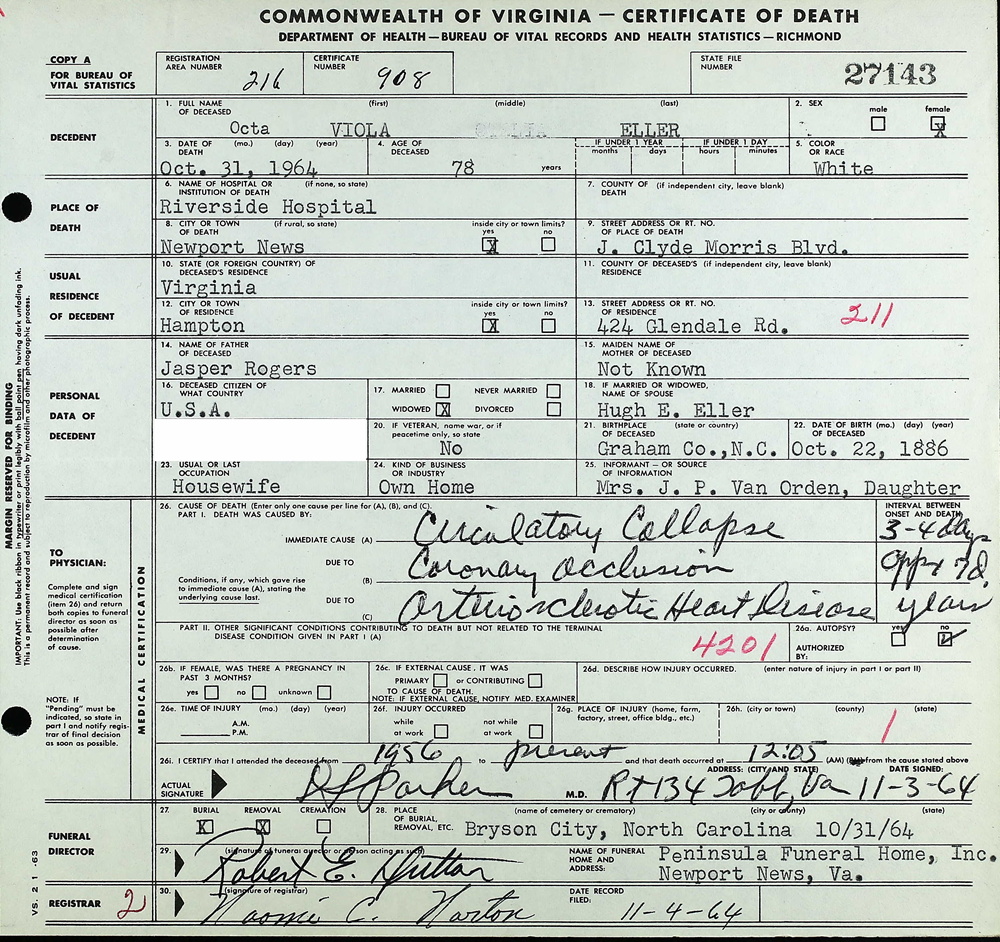 COMMONWEALTH OF VIRGINIA — CERTIFICATE OF DEATH
DEPARTMENT OF HEALTH—BUREAU OF VITAL RECORDS AND HEALTH STATISTICS—RICHMOND
COPY A
FOR BUREAU OF VITAL STATISTICS
REGISTRATION AREA NUMBER 216
CERTIFICATE NUMBER 908
STATE FILE NUMBER 27143
DECEDENT
1. FULL NAME OF DECEASED (first) (middle) (last)
Octa VIOLA ELLER
2. SEX male female X
3. DATE OF DEATH (mo.) (day) (year)
Oct. 31, 1964
4. AGE OF DECEASED
78 years
IF UNDER 1 YEAR months days
IF UNDER 1 DAY hours minutes
5. COLOR OR RACE
White
PLACE OF DEATH
6. NAME OF HOSPITAL OR INSTITUTION OF DEATH (if none, so state)
Riverside Hospital
7. COUNTY OF DEATH (if independent city, leave blank)
8. CITY OR TOWN OF DEATH (if rural, so state)
Newport News
inside city or town limits? yes X no
9. STREET ADDRESS OR RT. NO. OF PLACE OF DEATH
J. Clyde Morris Blvd.
USUAL RESIDENCE OF DECEDENT
10. STATE (OR FOREIGN COUNTRY) OF DECEASED'S RESIDENCE
Virginia
11. COUNTY OF DECEASED'S RESIDENCE (if independent city, leave blank)
12. CITY OR TOWN OF RESIDENCE
Hampton
inside city or town limits? yes X no
13. STREET ADDRESS OR RT. NO. OF RESIDENCE
424 Glendale Rd. 211
PERSONAL DATA OF DECEDENT
14. NAME OF FATHER OF DECEASED
Jasper Rogers
15. MAIDEN NAME OF MOTHER OF DECEASED
Not Known
16. DECEASED CITIZEN OF WHAT COUNTRY
U.S.A.
17. MARRIED NEVER MARRIED
WIDOWED X DIVORCED
18. IF MARRIED OR WIDOWED, NAME OF SPOUSE
Hugh E. Eller
20. IF VETERAN, name war, or if peacetime only, so state
No
21. BIRTHPLACE OF DECEASED (state or country)
Graham Co.,N.C.
22. DATE OF BIRTH (mo.) (day) (year) OF DECEASED
Oct. 22, 1886
23. USUAL OR LAST OCCUPATION
Housewife
24. KIND OF BUSINESS OR INDUSTRY
Own Home
25. INFORMANT — OR SOURCE OF INFORMATION
Mrs. J. P. Van Orden, Daughter
MARGIN RESERVED FOR BINDING
IMPORTANT: Use black ribbon in typewriter or print legibly with ball point pen having dark unfading ink.
This is a permanent record and subject to reproduction by microfilm and other photographic process.
TO PHYSICIAN:
Complete and sign medical certification (item 26) and return both copies to funeral director as soon as possible after determination of cause.
NOTE: If "Pending" must be indicated, so state in part I and notify registrar of final decision as soon as possible.
MEDICAL CERTIFICATION
26. CAUSE OF DEATH (Enter only one cause per line for (A), (B), and (C).
PART I. DEATH WAS CAUSED BY:
INTERVAL BETWEEN ONSET AND DEATH
IMMEDIATE CAUSE (A) Circulatory Collapse 3-4 days
DUE TO
Conditions, if any, which gave rise to immediate cause (A), stating the underlying cause last.
(B) Coronary Occlusion appx 7d.
DUE TO
(C) Arteriosclerotic Heart Disease years
PART II. OTHER SIGNIFICANT CONDITIONS CONTRIBUTING TO DEATH BUT NOT RELATED TO THE TERMINAL DISEASE CONDITION GIVEN IN PART I (A)
4201
26a. AUTOPSY? yes no
AUTHORIZED BY:
26b. IF FEMALE, WAS THERE A PREGNANCY IN PAST 3 MONTHS?
yes no unknown
26c. IF EXTERNAL CAUSE, IT WAS
PRIMARY or CONTRIBUTING
TO CAUSE OF DEATH.
NOTE: IF EXTERNAL CAUSE, NOTIFY MED. EXAMINER
26d. DESCRIBE HOW INJURY OCCURRED. (enter nature of injury in part I or part II)
26e. TIME OF INJURY (mo.) (day) (year)
A.M.
P.M.
26f. INJURY OCCURRED
while at work not while at work
26g. PLACE OF INJURY (home, farm, factory, street, office bldg., etc.)
26h. (city or town) (county) (state)
1
26i. I CERTIFY that I attended the deceased from 1956 to present and that death occurred at 12:05 (AM) from the cause stated above
ACTUAL SIGNATURE D L Parker M.D.
ADDRESS: (CITY AND STATE) Rt 134 Tabb, Va
DATE SIGNED: 11-3-64
FUNERAL DIRECTOR
27. BURIAL X REMOVAL X CREMATION
28. PLACE OF BURIAL, REMOVAL, ETC. (name of cemetery or crematory) (city or county) (state)
Bryson City, North Carolina 10/31/64
29. (signature of funeral director or person acting as such)
Robert E. Dutton
NAME OF FUNERAL HOME AND ADDRESS:
Peninsula Funeral Home, Inc.
Newport News, Va.
REGISTRAR 2
30. (signature of registrar)
Naomi C. Norton
DATE RECORD FILED:
11-4-64
VS. 2 1 -63